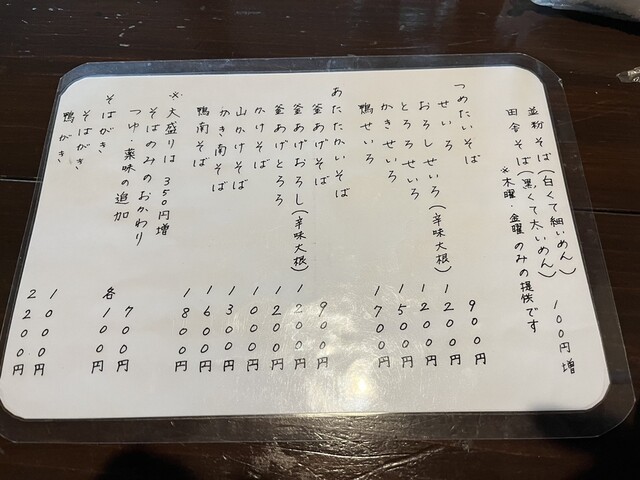 並粉そば(白くて細いめん)
田舎そば(黒くて太いめん) 100円増
※木曜・金曜のみの提供です
つめたいそば
せいろ 900円
おろしせいろ(辛味大根) 1200円
とろろせいろ 1200円
かきせいろ 1500円
鴨せいろ 1700円
あたたかいそば
釜あげそば 900円
釜あげおろし(辛味大根) 1200円
釜あげとろろ 1200円
かけそば 1000円
山かけそば 1300円
かき南そば 1600円
鴨南そば 1800円
※大盛りは350円増
そばのみのおかわり 700円
つゆ、薬味の追加 各100円
そばがき
そばがき 1000円
鴨がき 2200円